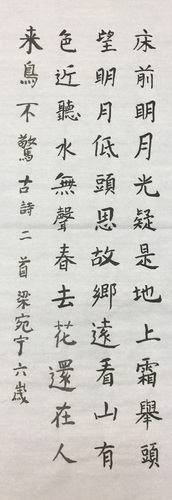 床前明月光疑是地上霜舉頭
望明月低頭思故鄉遠看山有
色近聽水無聲春去花還在人
来鳥不驚古詩二首梁宛宁六歲